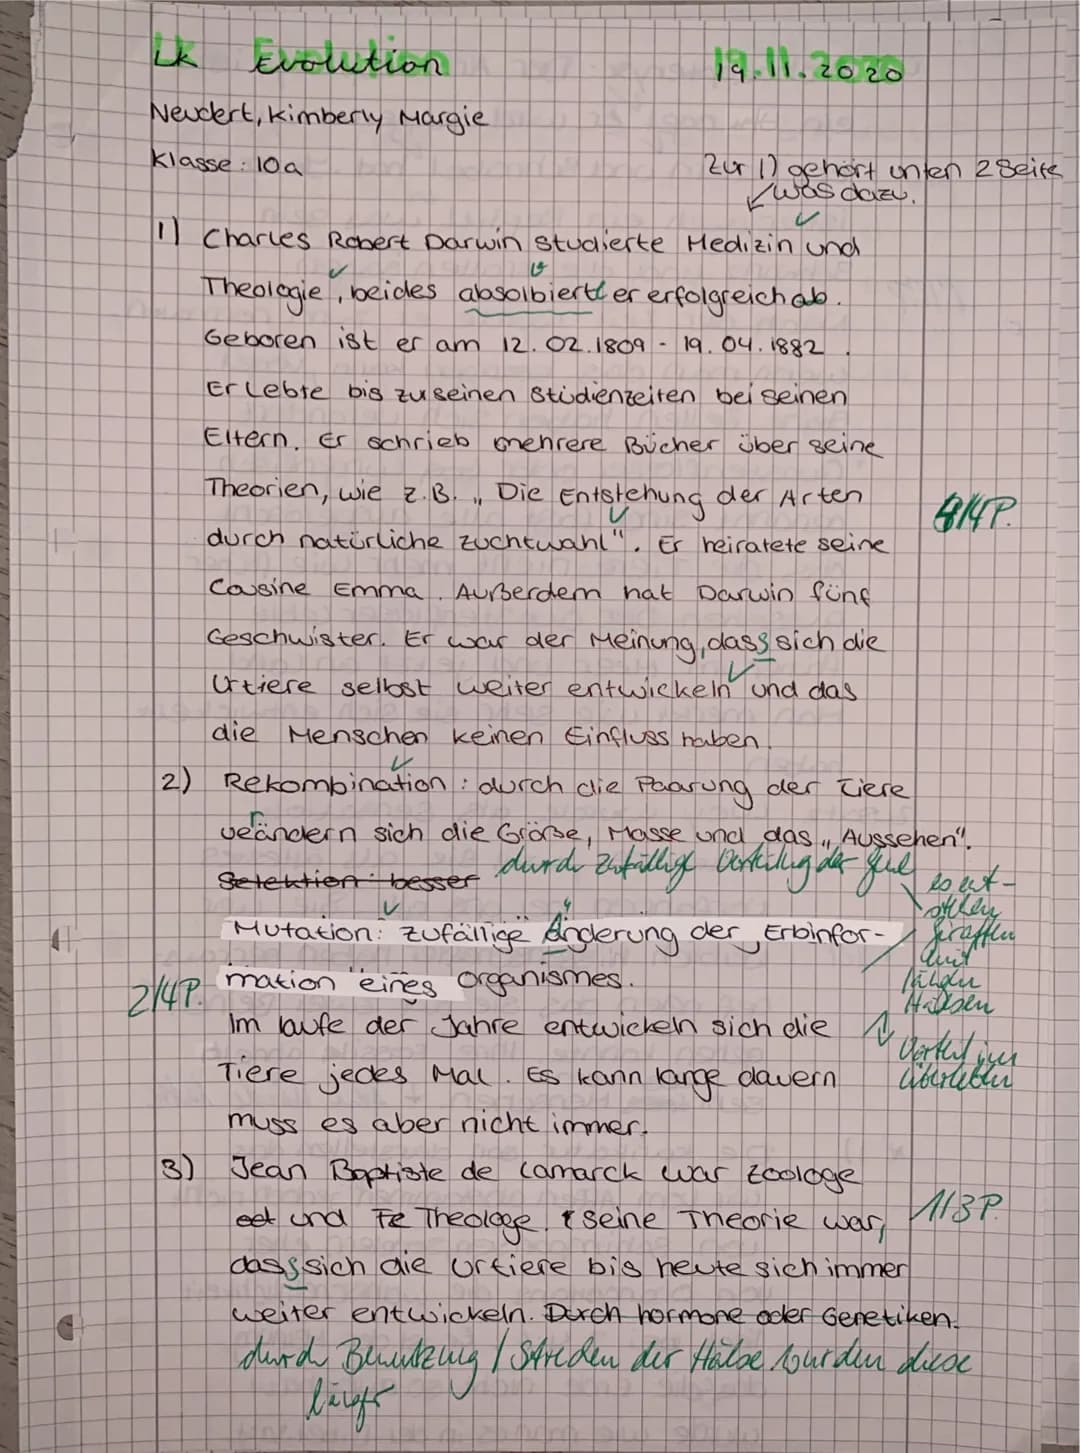 Lk Evolution 19.11.2020
Neudert, Kimberly Margie
Klasse: 10a
Zur 1) gehört unten 2 Seite
was dazu.
1) Charles Robert Darwin studierte Medizin und
Theologie, beides absolbiert er erfolgreich ab.
Geboren ist er am 12.02.1809 - 19.04.1882.
Er lebte bis zu seinen Studienzeiten bei seinen
Eltern. Er schrieb mehrere Bücher über seine
Theorien, wie z.B. „Die Entstehung der Arten
durch natürliche Zuchtwahl". Er heiratete seine
4/4P.
Cousine Emma. Außerdem hat Darwin fünf
Geschwister. Er war der Meinung, dass sich die
Urtiere selbst weiter entwickeln und das
die Menschen keinen Einfluss haben.
2) Rekombination: durch die Paarung der Tiere
verändern sich die Größe, Masse und das „Aussehen".
durch zufällige Verteilung der Gene
Selektion: besser
es ent-
stehen
Giraffen
mit
langen
Hälsen
Vorteil im
überleben
Mutation: zufällige Änderung der Erbinfor-
mation eines Organismes.
2/4P.
Im laufe der Jahre entwickeln sich die
Tiere jedes Mal. Es kann lange dauern
muss es aber nicht immer.
3) Jean Baptiste de Lamarck war Zoologe
und Theologe. Seine Theorie war,
1/3P.
dass sich die Urtiere bis heute sich immer
weiter entwickeln. Durch hormone oder Genetiken.
durch Benutzung / Strecken der Hälse wurden diese
länger